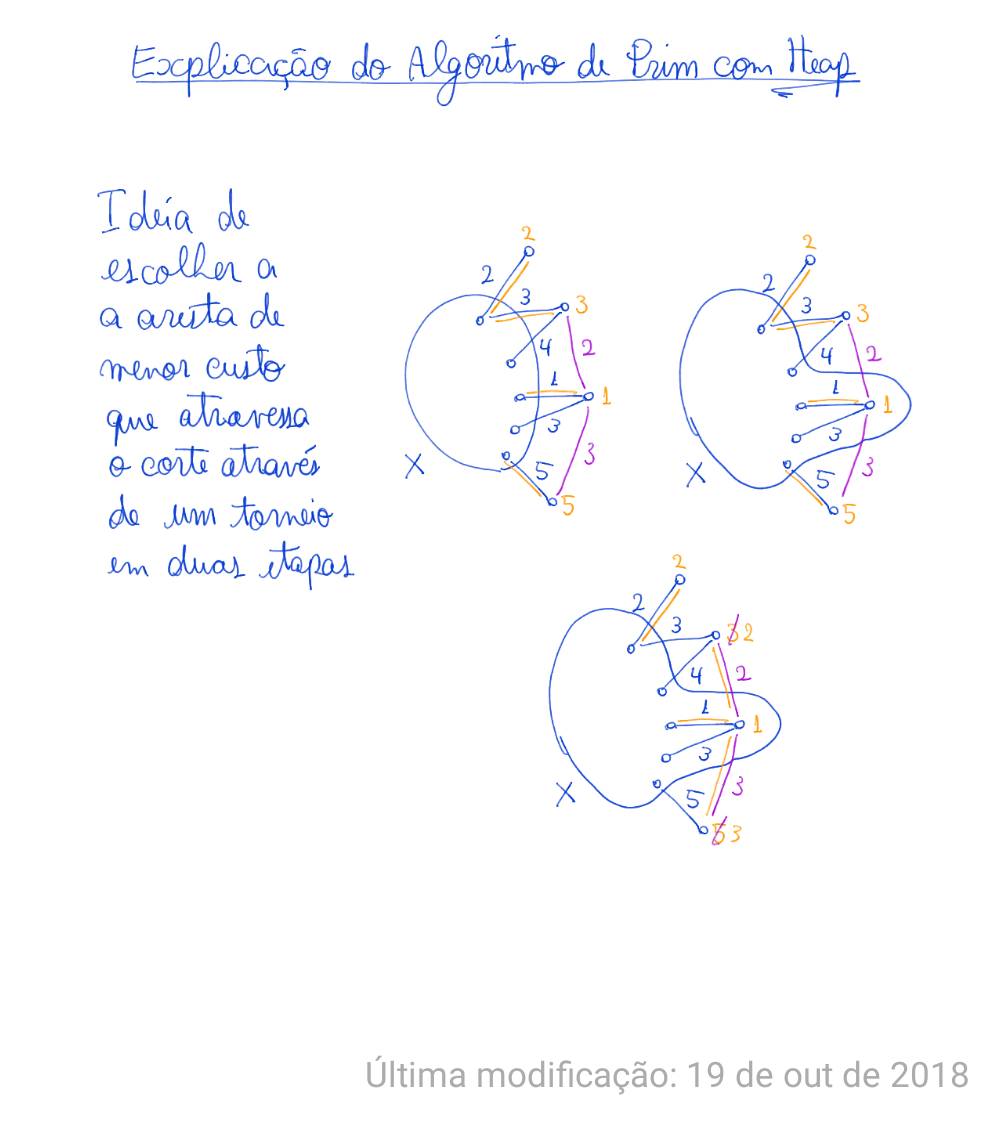 Explicação do Algoritmo de Prim com Heap
Ideia de
escolher a
a aresta de
menor custo
que atravessa
o corte através
de um torneio
em duas etapas
2
2
3
3
4
2
1
1
3
3
X
5
5
2
2
3
3
4
2
1
1
3
3
X
5
5
2
2
3
3 2
4
2
1
1
3
3
X
5
5 3
Última modificação: 19 de out de 2018